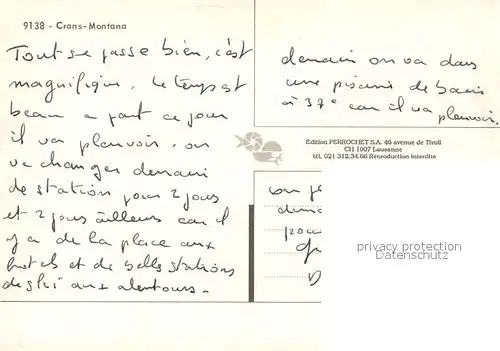 9138 - Crans-Montana
Tout se passe bien, c'est
magnifique, le temps est
beau a part ce jour
il va pleuvoir. on
va changer demain
de station pour 2 jours
et 2 jours ailleurs car il
y a de la place aux
hotels et de belles stations
de ski aux alentours.
demain on va dans
une piscine de bains
à 37° car il va pleuvoir.
Edition PERROCHET S.A. 46 avenue de Tivoli
CH 1007 Lausanne
tél. 021 312.34.66 Reproduction interdite
on
pou
privacy protection
Datenschutz